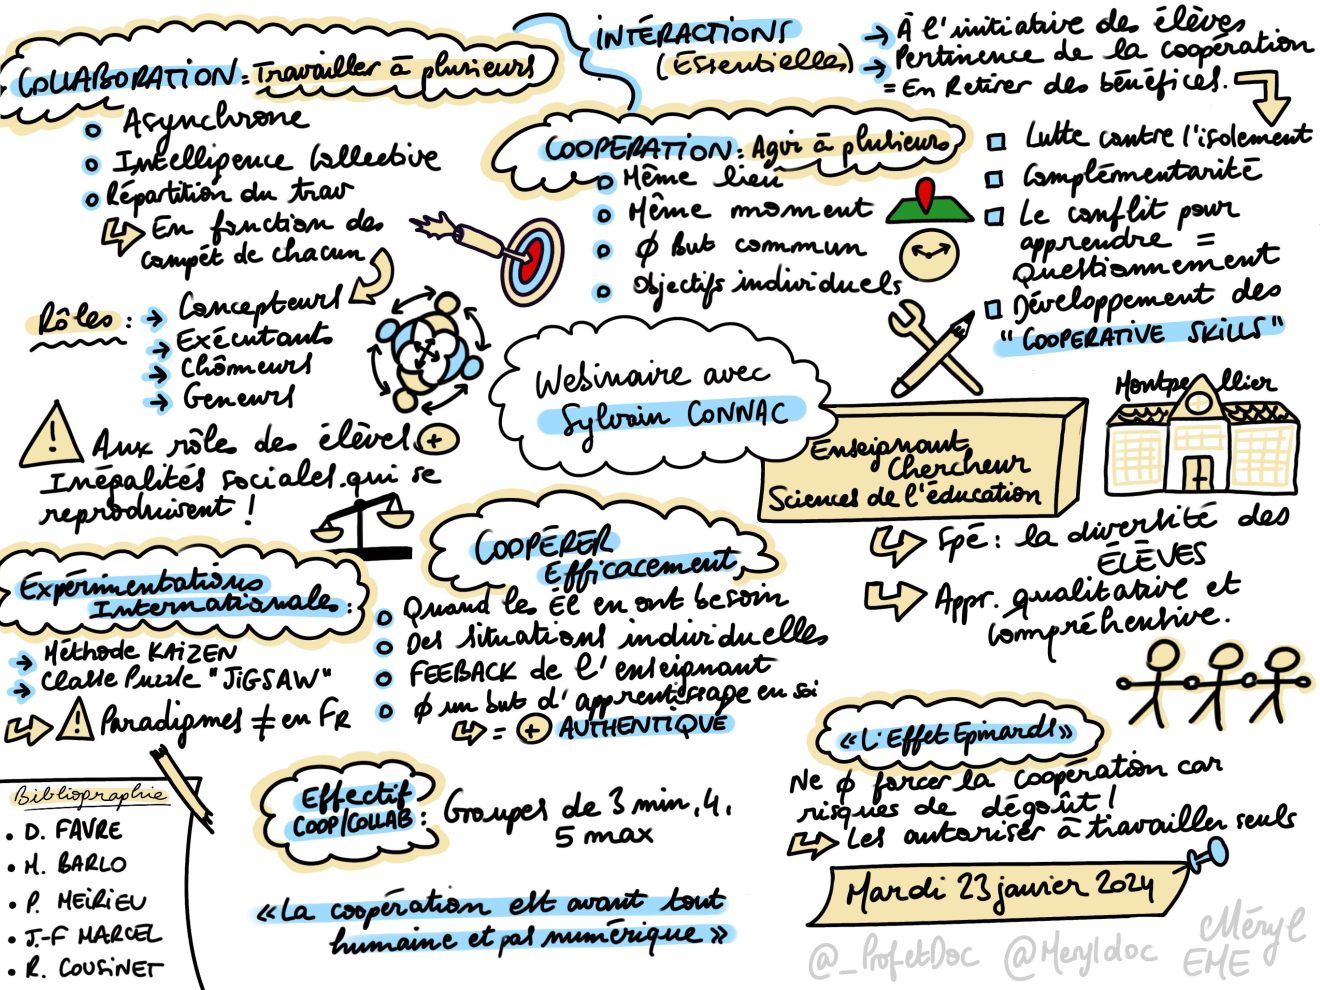 COLLABORATION : Travailler à plusieurs
Asynchrone
Intelligence Collective
Répartition du trav
En fonction des
compét de chacun
Rôles :
Concepteurs
Exécutants
Chômeurs
Geneurs
Aux rôle des élèves +
Inégalités sociales qui se
reproduisent !
INTÉRACTIONS
(Essentielles)
À l'initiative des élèves
Pertinence de la coopération
= En Retirer des bénéfices.
COOPERATION : Agir à plusieurs
Même lieu
Même moment
Ø But commun
Objectifs individuels
Lutte contre l'isolement
Complémentarité
Le conflit pour
apprendre =
Questionnement
Développement des
"COOPERATIVE SKILLS"
Webinaire avec
Sylvain CONNAC
Enseignant
Chercheur
Sciences de l'éducation
Montpellier
Spé : la diversité des
ÉLÈVES
Appr. qualitative et
compréhensive.
Expérimentations
Internationales :
Méthode KAiZEN
Classe Puzzle "JiGSAW"
Paradigmes ≠ en FR
COOPÉRER
Efficacement
Quand les Él en ont besoin
Des situations individuelles
FEEBACK de l'enseignant
Ø un but d'apprentissage en soi
= + AUTHENTIQUE
«L'Effet Epinards»
Ne Ø forcer la coopération car
risques de dégoût !
Les autoriser à travailler seuls
Bibliographie
D. FAVRE
M. BARLO
P. MEIRIEU
J.-F MARCEL
R. COUSINET
Effectif
COOP/COLLAB :
Groupes de 3 min, 4,
5 max
«La coopération est avant tout
humaine et pas numérique»
Mardi 23 janvier 2024
@_ProfetDoc @Meryldoc
Méryl
EME